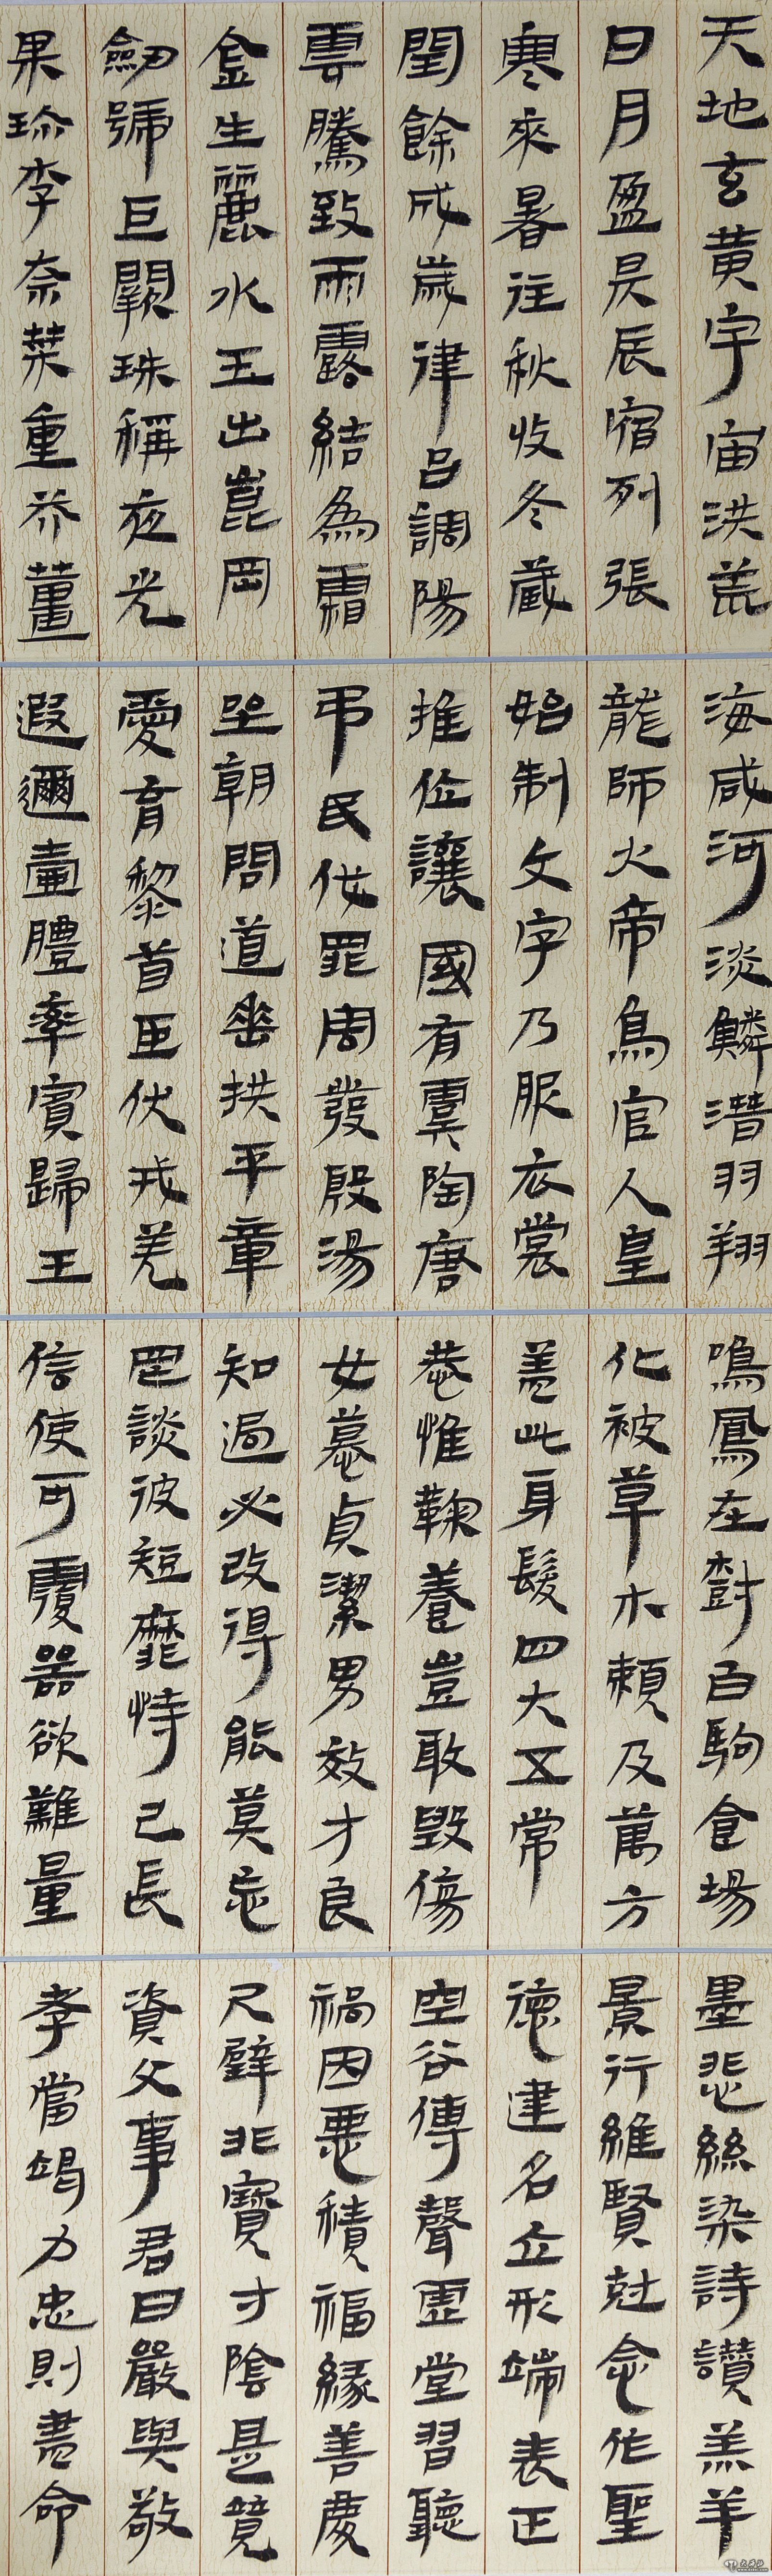 天地玄黃宇宙洪荒
日月盈昃辰宿列張
寒來暑往秋收冬藏
閏餘成歲律呂調陽
雲騰致雨露結為霜
金生麗水玉出崑岡
劒號巨闕珠稱夜光
果珍李柰菜重芥薑
海咸河淡鱗潛羽翔
龍師火帝鳥官人皇
始制文字乃服衣裳
推位讓國有虞陶唐
弔民伐罪周發殷湯
坐朝問道垂拱平章
愛育黎首臣伏戎羌
遐邇壹體率賓歸王
鳴鳳在樹白駒食場
化被草木賴及萬方
蓋此身髮四大五常
恭惟鞠養豈敢毀傷
女慕貞潔男效才良
知過必改得能莫忘
罔談彼短靡恃己長
信使可覆器欲難量
墨悲絲染詩讚羔羊
景行維賢尅念作聖
德建名立形端表正
空谷傳聲虛堂習聽
禍因惡積福緣善慶
尺璧非寶寸陰是競
資父事君曰嚴與敬
孝當竭力忠則盡命